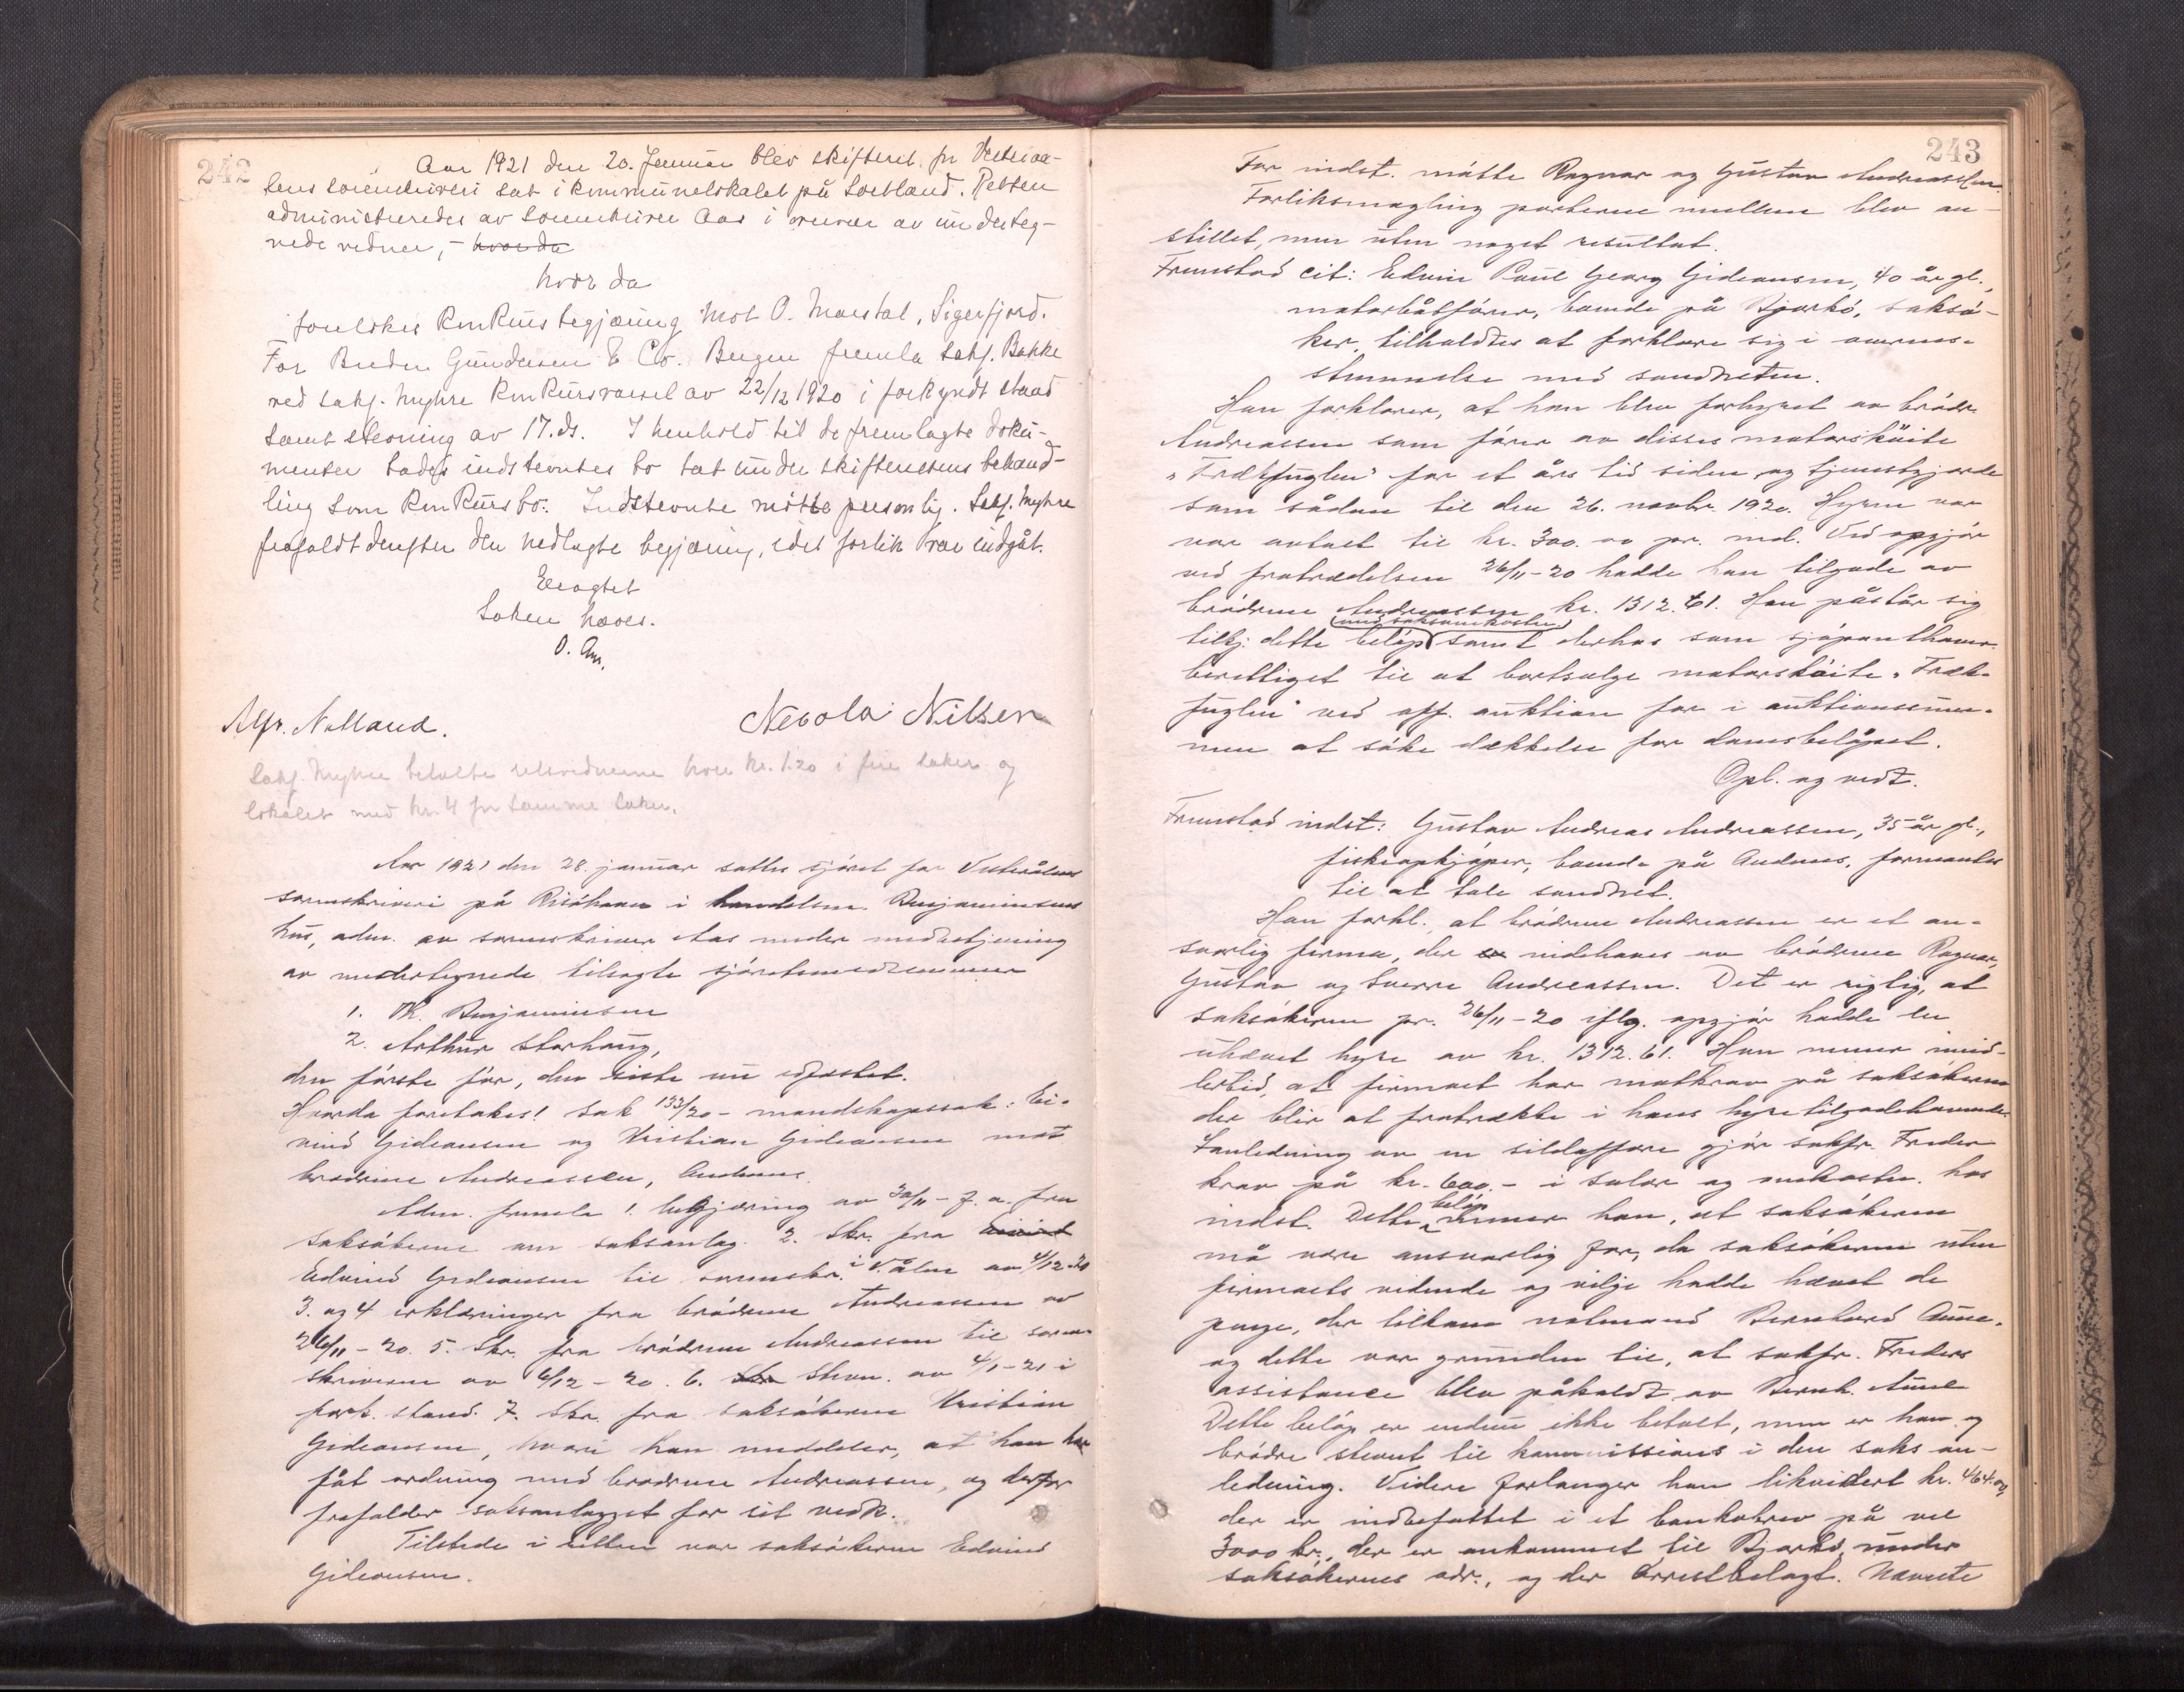 242
Aar 1921 den 20. Januar blev skifteret for Vesteraa-
lens sorenskriveri sat i kommunelokalet på Sortland. Retten
administreredes av sorenskriver Aas i nærvær av underteg-
nede vidner, - hvor da
hvor da
foretokes konkursbegjæring mot O. Maristal, Sigerfjord.
For Brødr. Gundersen & Co. Bergen fremla sakf. Bakke
ved sakf. Myhre konkursvarsel av 22/12 1920 i forkyndt stand
samt stevning av 17. ds. I henhold til de fremlagte doku-
menter bades indstevntes bo tat under skifterettens behand-
ling som konkursbo. Indstevnte møtte personlig. Sakf. Myhre
frafaldt derefter den nedlagte begjæring, idet forlik var indgåt.
Eragtet
Saken hæves.
O. Aas.
Alfr. Notland.
Nicolai Nilsen
Sakf. Myhre betalte retsvidnerne hver kr. 1.20 i fire saker og
lokalet med kr. 4 for samme saker.
Aar 1921 den 28. januar sattes sjöret for Vesterålens
sorenskriveri på Risöhavn i handelsm. Benjaminsens
hus, adm. av sorenskriver Aas under medbetjening
av undertegnede tilsagte sjöretsmedlemmer
1. M. Benjaminsen
2. Arthur Storhaug,
den förste før, den siste nu edfæstet.
Hvorda foretokes: Sak 133/20 - mandskapssak: Ei-
vind Gideonsen og Kristian Gideonsen mot
brødrene Andreassen, Andenes.
Adm. fremla 1. begjæring av 30/11 - f. a. fra
saksökerne om saksanlæg. 2. Skr. fra Eivind
Edvind Gideonsen til sorenskr. i V.ålen av 4/12-20
3. og 4 erklæringer fra brödrene Andreassen av
26/11 - 20. 5. Skr. fra brödrene Andreassen til soren-
skriveren av 6/12 - 20. 6. Skr. stevn. av 4/1 - 21 i
fork. stand. 7. Skr. fra saksökeren Kristian
Gideonsen, hvori han meddeler, at han har
fåt ordning med brödrene Andreassen, og derfor
frafalder saksanlægget for sit vedk.
Tilstede i retten var saksökeren Edvind
Gideonsen.
243
For indst. mötte Ragnar og Gustav Andreassen.
Forliksmægling parterne mellem blev an-
stillet, men uten noget resultat.
Fremstod cit: Edvin Paul Georg Gideonsen, 40 år gl.,
motorbåtförer, boende på Bjarkö, saksö-
ker, tilholdtes at forklare sig i overens-
stemmelse med sandheten.
Han forklarer, at han blev forhyret av brödr.
Andreassen som förer av disses motorsköite
"Trækfuglen" for et års tid siden og tjenstgjorde
som sådan til den 26. novbr. 1920. Hyren var
var avtalt til kr. 300.00 pr. md. Ved opgjör
ved fratrædelsen 26/11 - 20 hadde han tilgode av
brödrene Andreassen kr. 1312.61. Han påstår sig
(med saksomkostn.)
tilkj. dette belöp samt derhos som sjöpanthaver
berettiget til at bortsælge motorsköite "Træk-
fuglen" ved off. auktion for i auktionssum-
men at söke dækkelse for domsbelöpet.
Opl. og vedt.
Fremstod indst: Gustav Andreas Andreassen, 35 år gl.,
fiskeopkjöper, boende på Andenes, formantes
til at tale sandhet.
Han forkl., at brödrene Andreassen er et an-
svarlig firma, der er indehaves av brödrene Ragnar,
Gustav og Sverre Andreassen. Det er rigtig, at
saksökeren pr. 26/11 - 20 iflg. opgjör hadde en
uhævet hyre av kr. 1312.61. Han mener imid-
lertid, at firmaet har motkrav på saksökeren
der blir at fratrække i hans hyretilgodehavende.
I anledning av en sildaffære gjör sakfr. Freder
krav på kr. 600.- i salær og omkostn. hos
indst. Dette belöp mener han, at saksökeren
må være ansvarlig for, da saksökeren uten
firmaets vidende og vilje hadde hævet de
penge, der tilkom notmand Bernhard Aune,
og dette var grunden til, at sakfr. Freders
assistance blev påkaldt av Bernh. Aune
Dette belöp er endnu ikke betalt, men er han og
brödre stevnt til kommissions i den saks an-
ledning. Videre forlanger han likvidert kr. 464.00,
der er indbefattet i et bankobrev på vel
3000 kr., der er ankommet til Bjarkö under
saksökernes adr., og der arrestbelagt. Nævnte